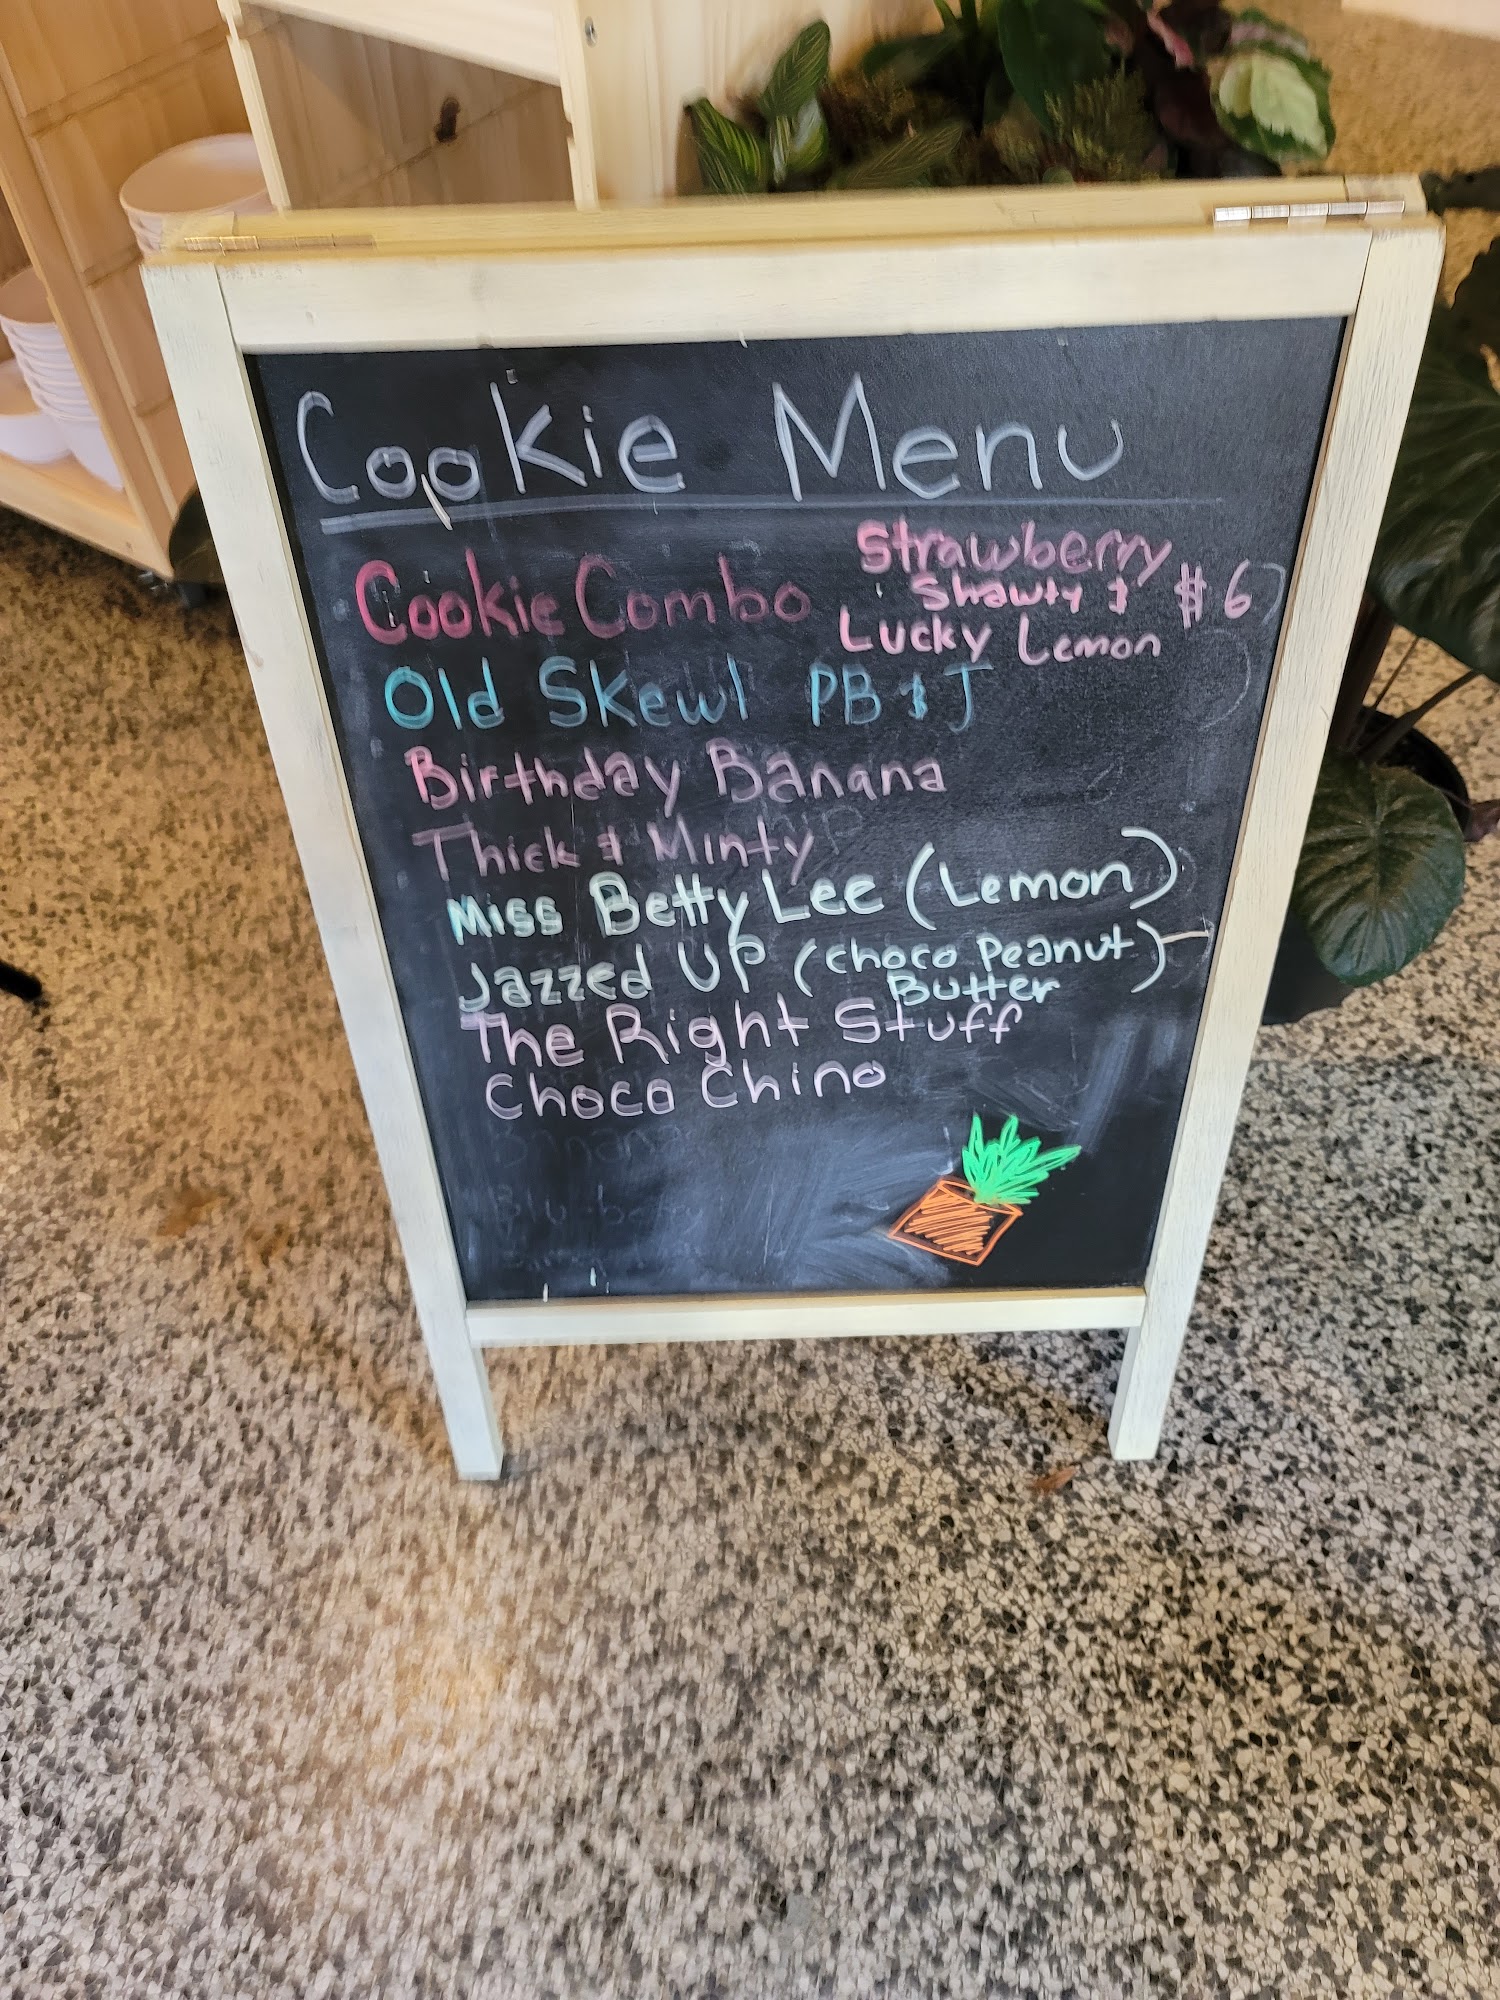 Cookie Menu
Cookie Combo
Strawberry
Shawty &
Lucky Lemon
$6
Old Skewl PB & J
Birthday Banana
Thick & Minty
Miss Betty Lee (Lemon)
Jazzed UP (Choco Peanut
Butter)
The Right Stuff
Choco Chino
Banana